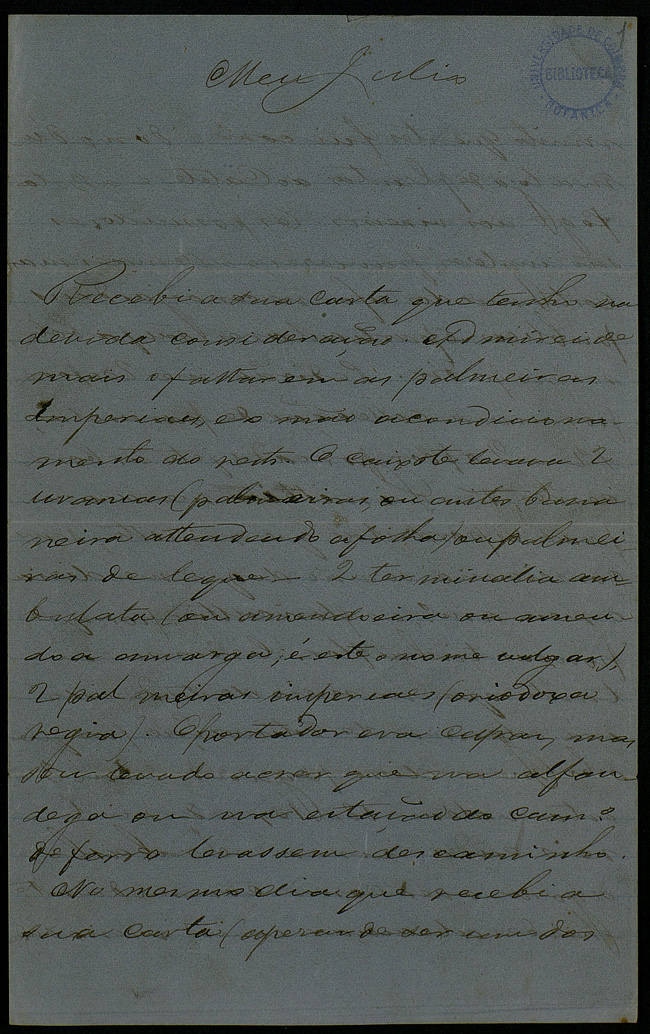 1
UNIVERSIDADE DE COIMBRA
BIBLIOTECA
BOTANICA
Meu Julio
Recebi a sua carta que tenho na
devida consideração. Admirei de
mais o faltarem as palmeiras
imperiaes, e o mao acondiciona
mento do resto. O caixote levava 2
uranias (palmeiras, ou antes bana
neira attendendo a folha) ou palmei
ras de leque - 2 terminalia am-
bulata (ou amendoeira ou amen
doa amarga, é este o nome vulgar),
2 palmeiras imperiaes (oriodoxa
regia). O portador era capaz, mas
sou levado a crer que na alfan
dega ou na estação do cam.º
de ferro levassem descaminho.
No mesmo dia que recebi a
sua carta (apezar de ser um dos